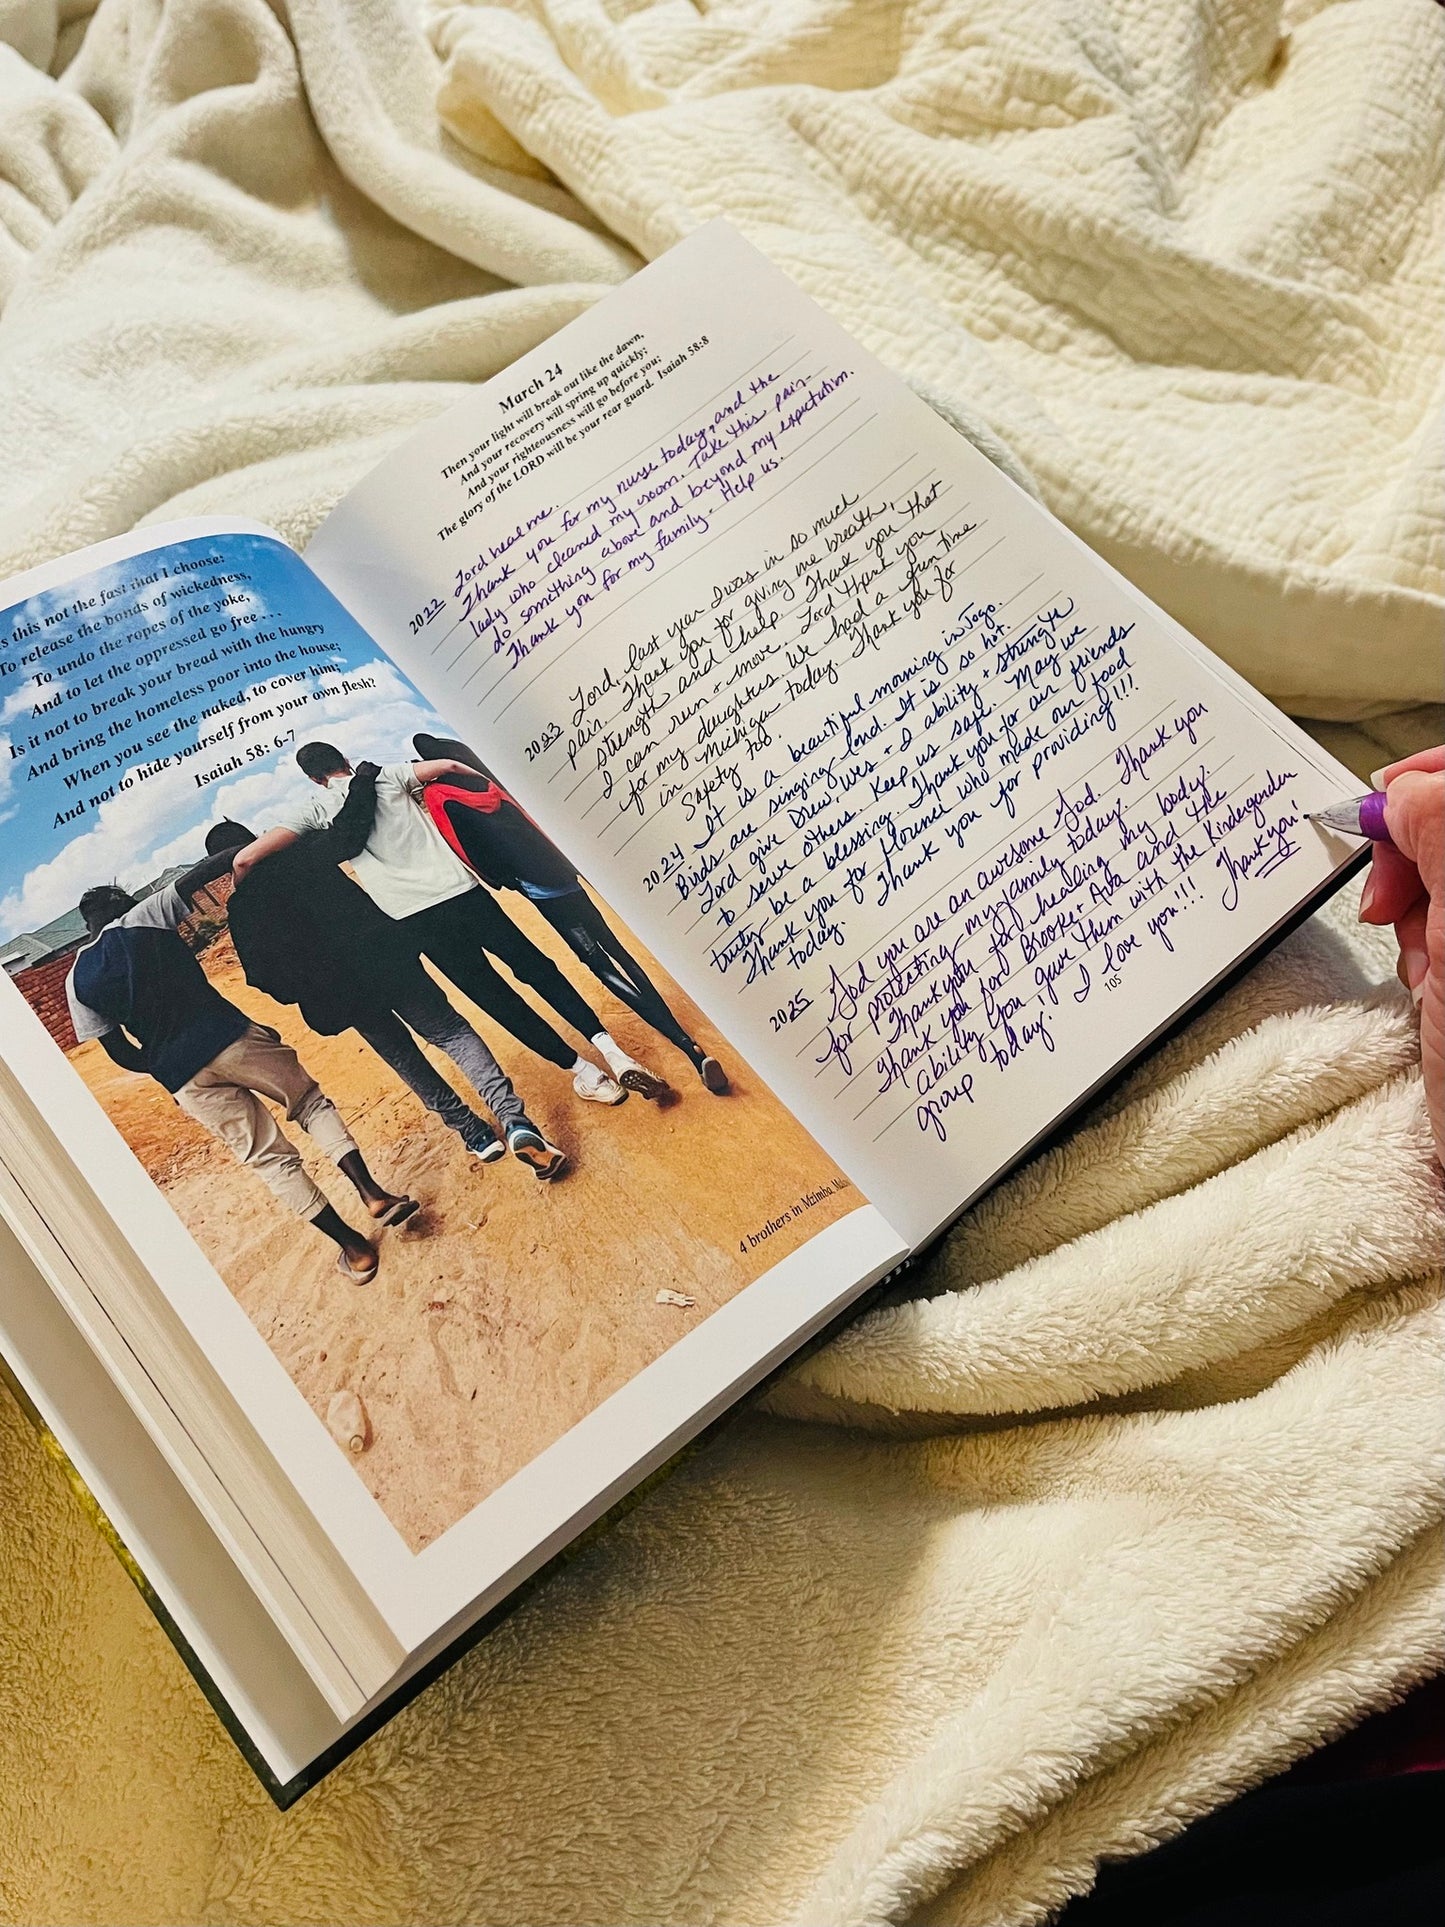 s this not the fast that I choose:
To release the bonds of wickedness,
To undo the ropes of the yoke,
And to let the oppressed go free . . .
Is it not to break your bread with the hungry
And bring the homeless poor into the house;
When you see the naked, to cover him;
And not to hide yourself from your own flesh?
Isaiah 58: 6-7
4 brothers in Mzimba,
March 24
Then your light will break out like the dawn,
And your recovery will spring up quickly;
And your righteousness will go before you;
The glory of the LORD will be your rear guard. Isaiah 58:8
2022 Lord heal me.
Thank you for my nurse today, and the
lady who cleaned my room. Take this pain-
do something above and beyond my expectation.
Thank you for my family. Help us.
2023 Lord, last year I was in so much
pain. Thank you for giving me breath,
strength and help. Thank you that
I can run & move. Lord thank you
for my daughters. We had a fun time
in Michigan today. Thank you for
safety too.
2024 It is a beautiful morning in Togo.
Birds are singing loud. It is so hot.
Lord give Drew, Wes & I ability & strength
to serve others. Keep us safe. May we
truly be a blessing. Thank you for our friends
Thank you for who made our food
today. Thank you for providing!!!
2025 God you are an awesome God. Thank you
for protecting my family today.
Thank you for healing my body.
Thank you for Brooke & Ava and the
ability you gave them with the Kindergarden
group today! I love you!!! Thank you!
105